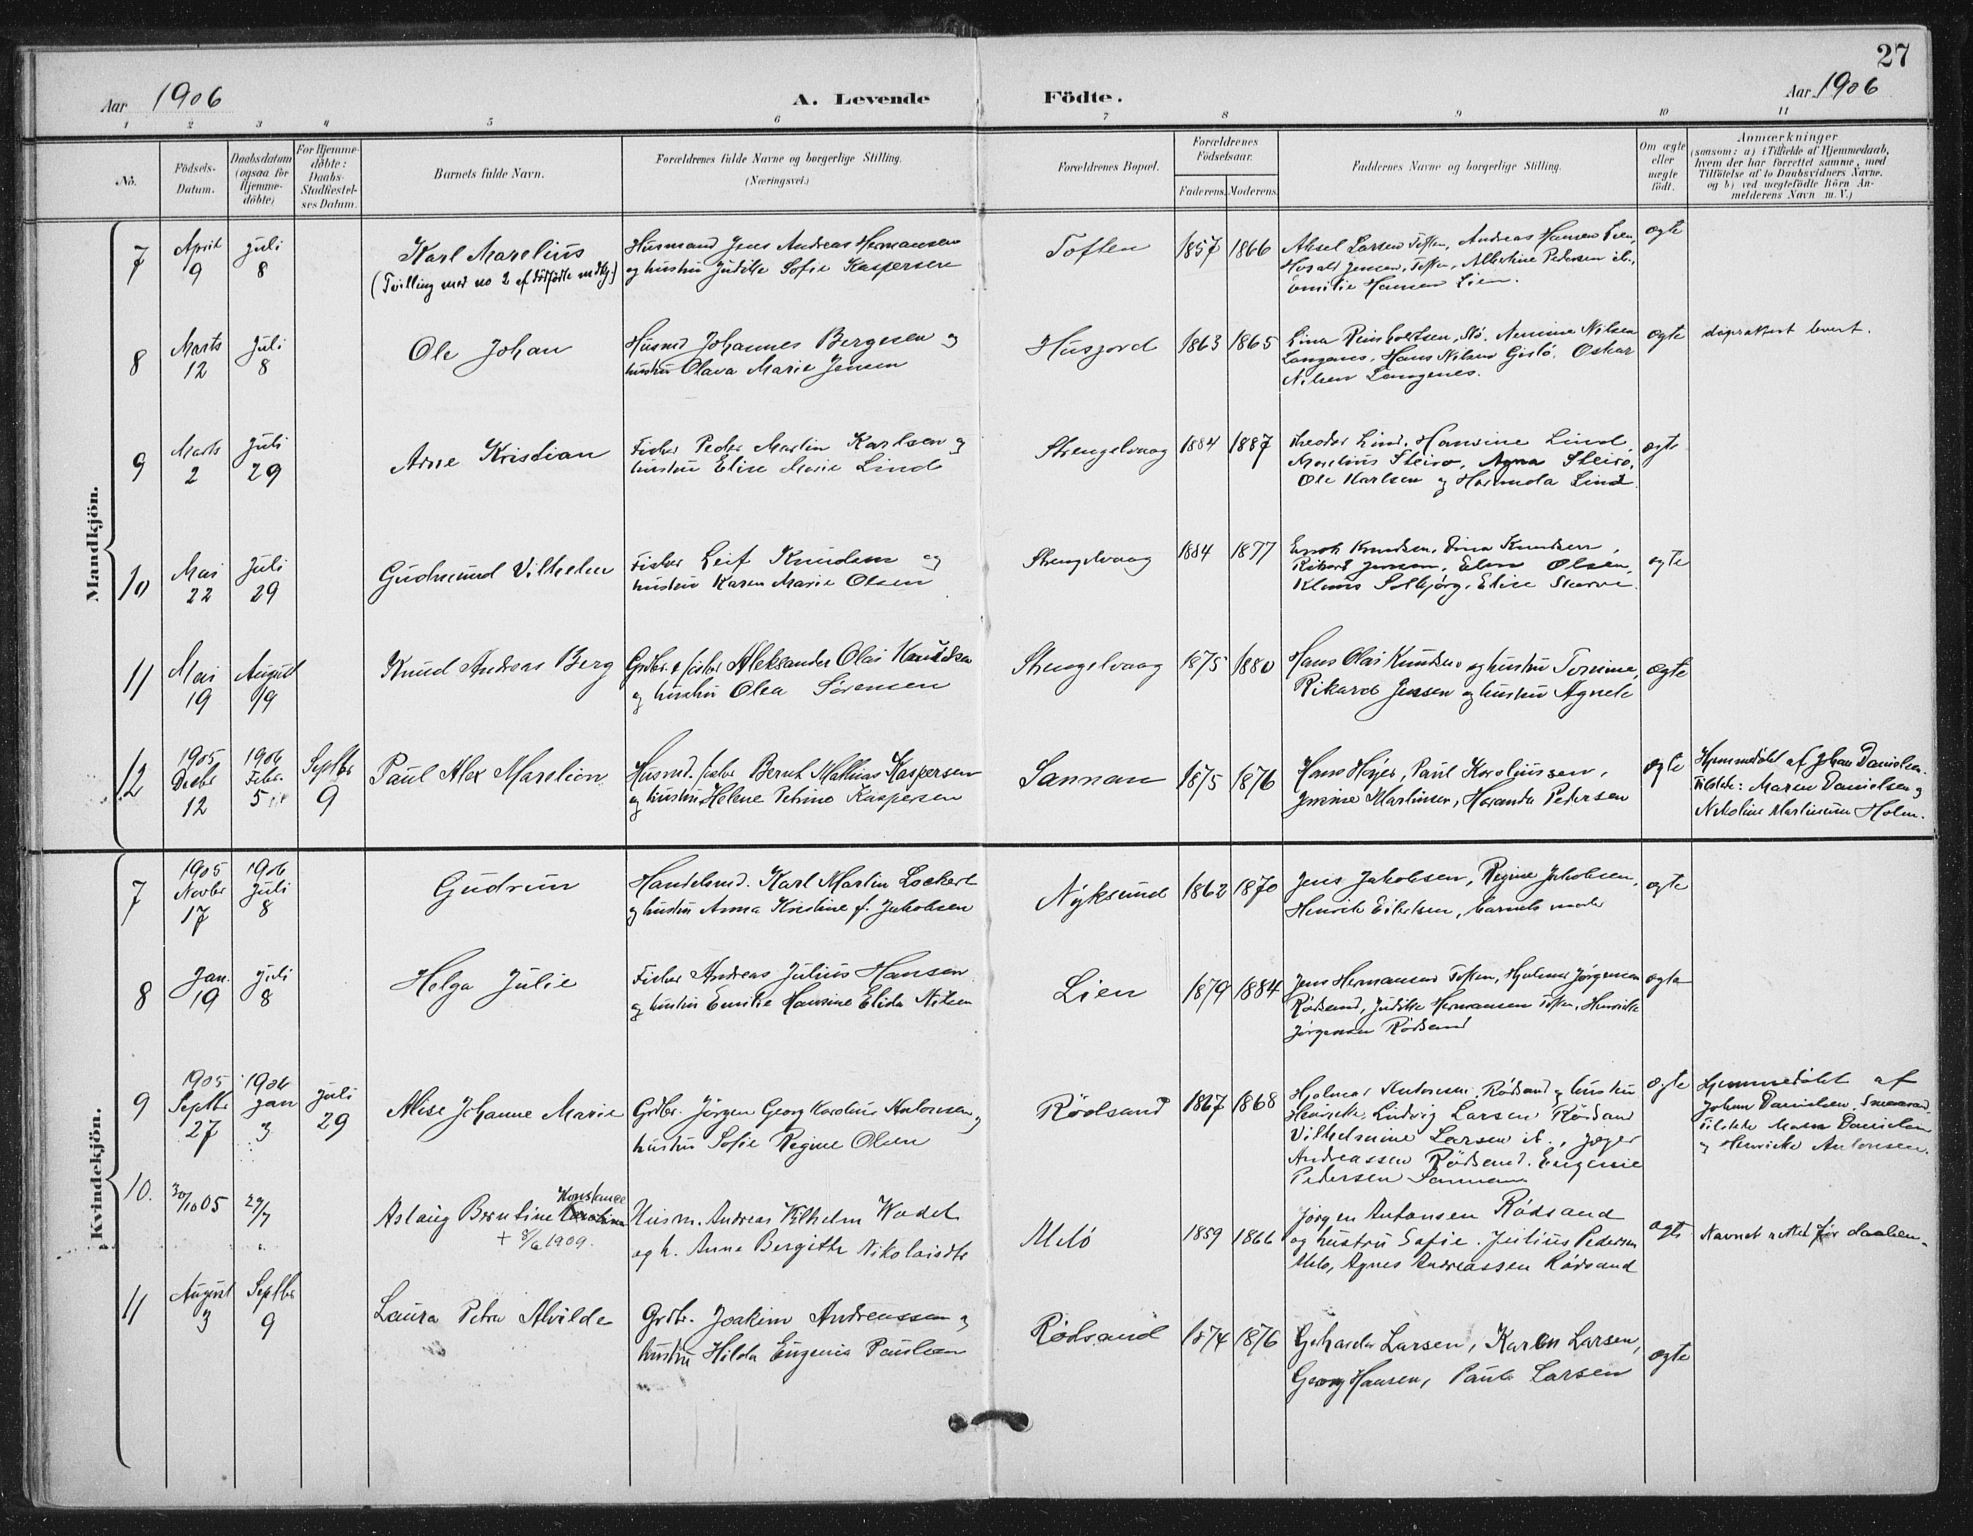 27
Aar 1906
A. Levende
Födte.
Aar 1906
1 2 3 4 5 6 7 8 9 10 11
No.
Födsels-
Datum.
Daabsdatum
(ogsaa for
Hjemme-
döbte)
For Hjemme-
döbte:
Daabs-
Stadfæstel-
ses Datum.
Barnets fulde Navn.
Forældrenes fulde Navne og borgerlige Stilling.
(Næringsvei.)
Forældrenes Bopæl.
Forældrenes
Födselsaar.
Faderens. Moderens.
Faddernes Navne og borgerlige Stilling.
Om ægte
eller
uægte
födt.
Anmærkninger
(saasom: a) i Tilfælde af Hjemmedaab,
hvem der har forrettet samme, med
Tilföielse af to Daabsvidners Navne.
og b) ved uægtefödte Börn An-
melderens Navn m. V.)
Mandkjön.
7
April
9
Juli
8
Karl Marelius
(Tvilling med no 2 af dødfødte mdkj.)
Husmand Jens Andreas Hermansen
og hustru Judithe Sofie Kaspersen
Toften
1857 1866
Aksel Larsen Toften, Andreas Hansen Lien,
Jensen, Toften, Albertine Pedersen ib.,
Emilie Hansen Lien.
ægte
8
Marts
12
Juli
8
Ole Johan
Husmd Johannes Bergesen og
hustru Olava Marie Jensen
Husjord
1863 1865
Lina Reinholdtsen, Stø. Nilsen
Langenes, Hans Nilsen Gislø. Oskar
Nilsen Langenes.
ægte
daapsattest levert.
9
Marts
2
Juli
29
Arne Kristian
Fisker Peder Martin Karlsen og
hustru Elise Marie Lind
Strengelvaag
1884 1887
Theodor Lind, Hansine Lind,
Marelius Steiro, Agna Steiro,
Ole Karlsen og Lind
ægte
10
Mai
22
Juli
29
Gudmund Vilhelm
Fisker Leif Knudsen og
hustru Karen Marie Olsen
Strengelvaag
1884 1877
Enok Knudsen, Dina Knudsen,
Rikard Jensen, Elen Olsen,
Klaus Solbjørg, Elise Skarvi
ægte
11
Mai
19
August
19
Knud Andreas Berg
Grdbr. & fisker Aleksander Olai Knudsen
og hustru Olea Sørensen
Strengelvaag
1875 1880
Hans Olai Knudsen og hustru Tomine,
Rikard Jensen og hustru Agnete
ægte
12
1905
Decbr
12
1906
Febr.
5
Septbr
9
Paul Alex Marelion
Husmd. fisker Bernt Mathias Kaspersen
og hustru Helene Petrine Kaspersen
Sannan
1875 1876
Hans Høyer, Paul Karoliussen,
Martinsen, Pedersen
ægte
Hjemmedøbt af Johan Danielsen.
Tilstede: Maren Danielsen og
Nikoline Martinsen Holm.
Kvindekjön.
7
1905
Novbr
17
1906
Juli
8
Gudrun
Handelsmd. Karl Martin Lockert
og hustru Anna Kristine f. Jakobsen
Nyksund
1862 1870
Jens Jakobsen, Regine Jakobsen,
Henrik Eilertsen, barnets moder
ægte
8
Jan.
19
Juli
8
Helga Julie
Fisker Andreas Julius Hansen
og hustru Emilie Hansine Elida Nilsen
Lien
1879 1884
Jens Hermansen Toften, Hjalmar Jørgensen
Rødsand, Judithe Hermansen Toften, Henrikke
Jørgensen Rødsand
ægte
9
1905
Septbr
27
1906
Jan
3
Juli
29
Alise Johanne Marie
Grdbr. Jørgen Georg Karolius Antonsen og
hustru Sofie Regine Olsen
Rødsand
1867 1868
Hjalmar Antonsen, Rødsand og hustru
Henrikke, Ludvig Larsen Rødsand
Vilhelmine Larsen ib., Jøger
Andreassen Rødsand. Eugenie
Pedersen Sannan
ægte
Hjemmedøbt af
Johan Danielsen,
Tilstede Maren Danielsen
og Henrikke Antonsen.
10.
30/10 05
29/7
Konstance
Aslaug Berntine
+ 8/6 1909.
Husm. Andreas Vilhelm Wadel
og h. Anna Bergitte Nikolaisdtr
Melø
1859 1866
Jørgen Antonsen Rødsand
og hustru Sofie. Julius Pedersen
Melø, Agnes Andreassen Rødsand
ægte
Navnet rettet før daaben.
11
August
3
Septbr
9
Laura Petra Alvilde
Grdbr. Joakim Andreassen og
hustru Hilda Eugenia Paulsen
Rødsand
1874 1876
Gerharda Larsen, Karen Larsen,
Georg Hansen, Paul Larsen
ægte